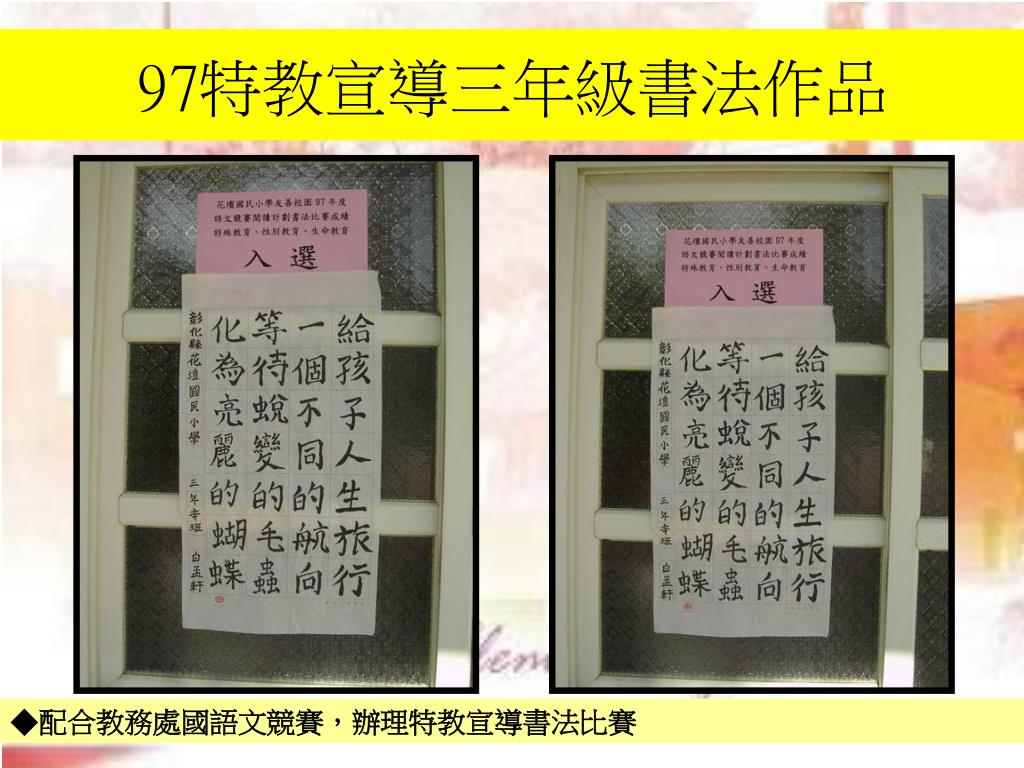 97特教宣導三年級書法作品
花壇國民小學友善校園97年度
語文競賽閱讀計劃書法比賽成績
特殊教育、性別教育、生命教育
入選
給孩子人生旅行
一個不同的航向
等待蛻變的毛蟲
化為亮麗的蝴蝶
彰化縣花壇國民小學 三年辛班 白孟軒
花壇國民小學友善校園97年度
語文競賽閱讀計劃書法比賽成績
特殊教育、性別教育、生命教育
入選
給孩子人生旅行
一個不同的航向
等待蛻變的毛蟲
化為亮麗的蝴蝶
彰化縣花壇國民小學 三年辛班 白孟軒
◆配合教務處國語文競賽，辦理特教宣導書法比賽